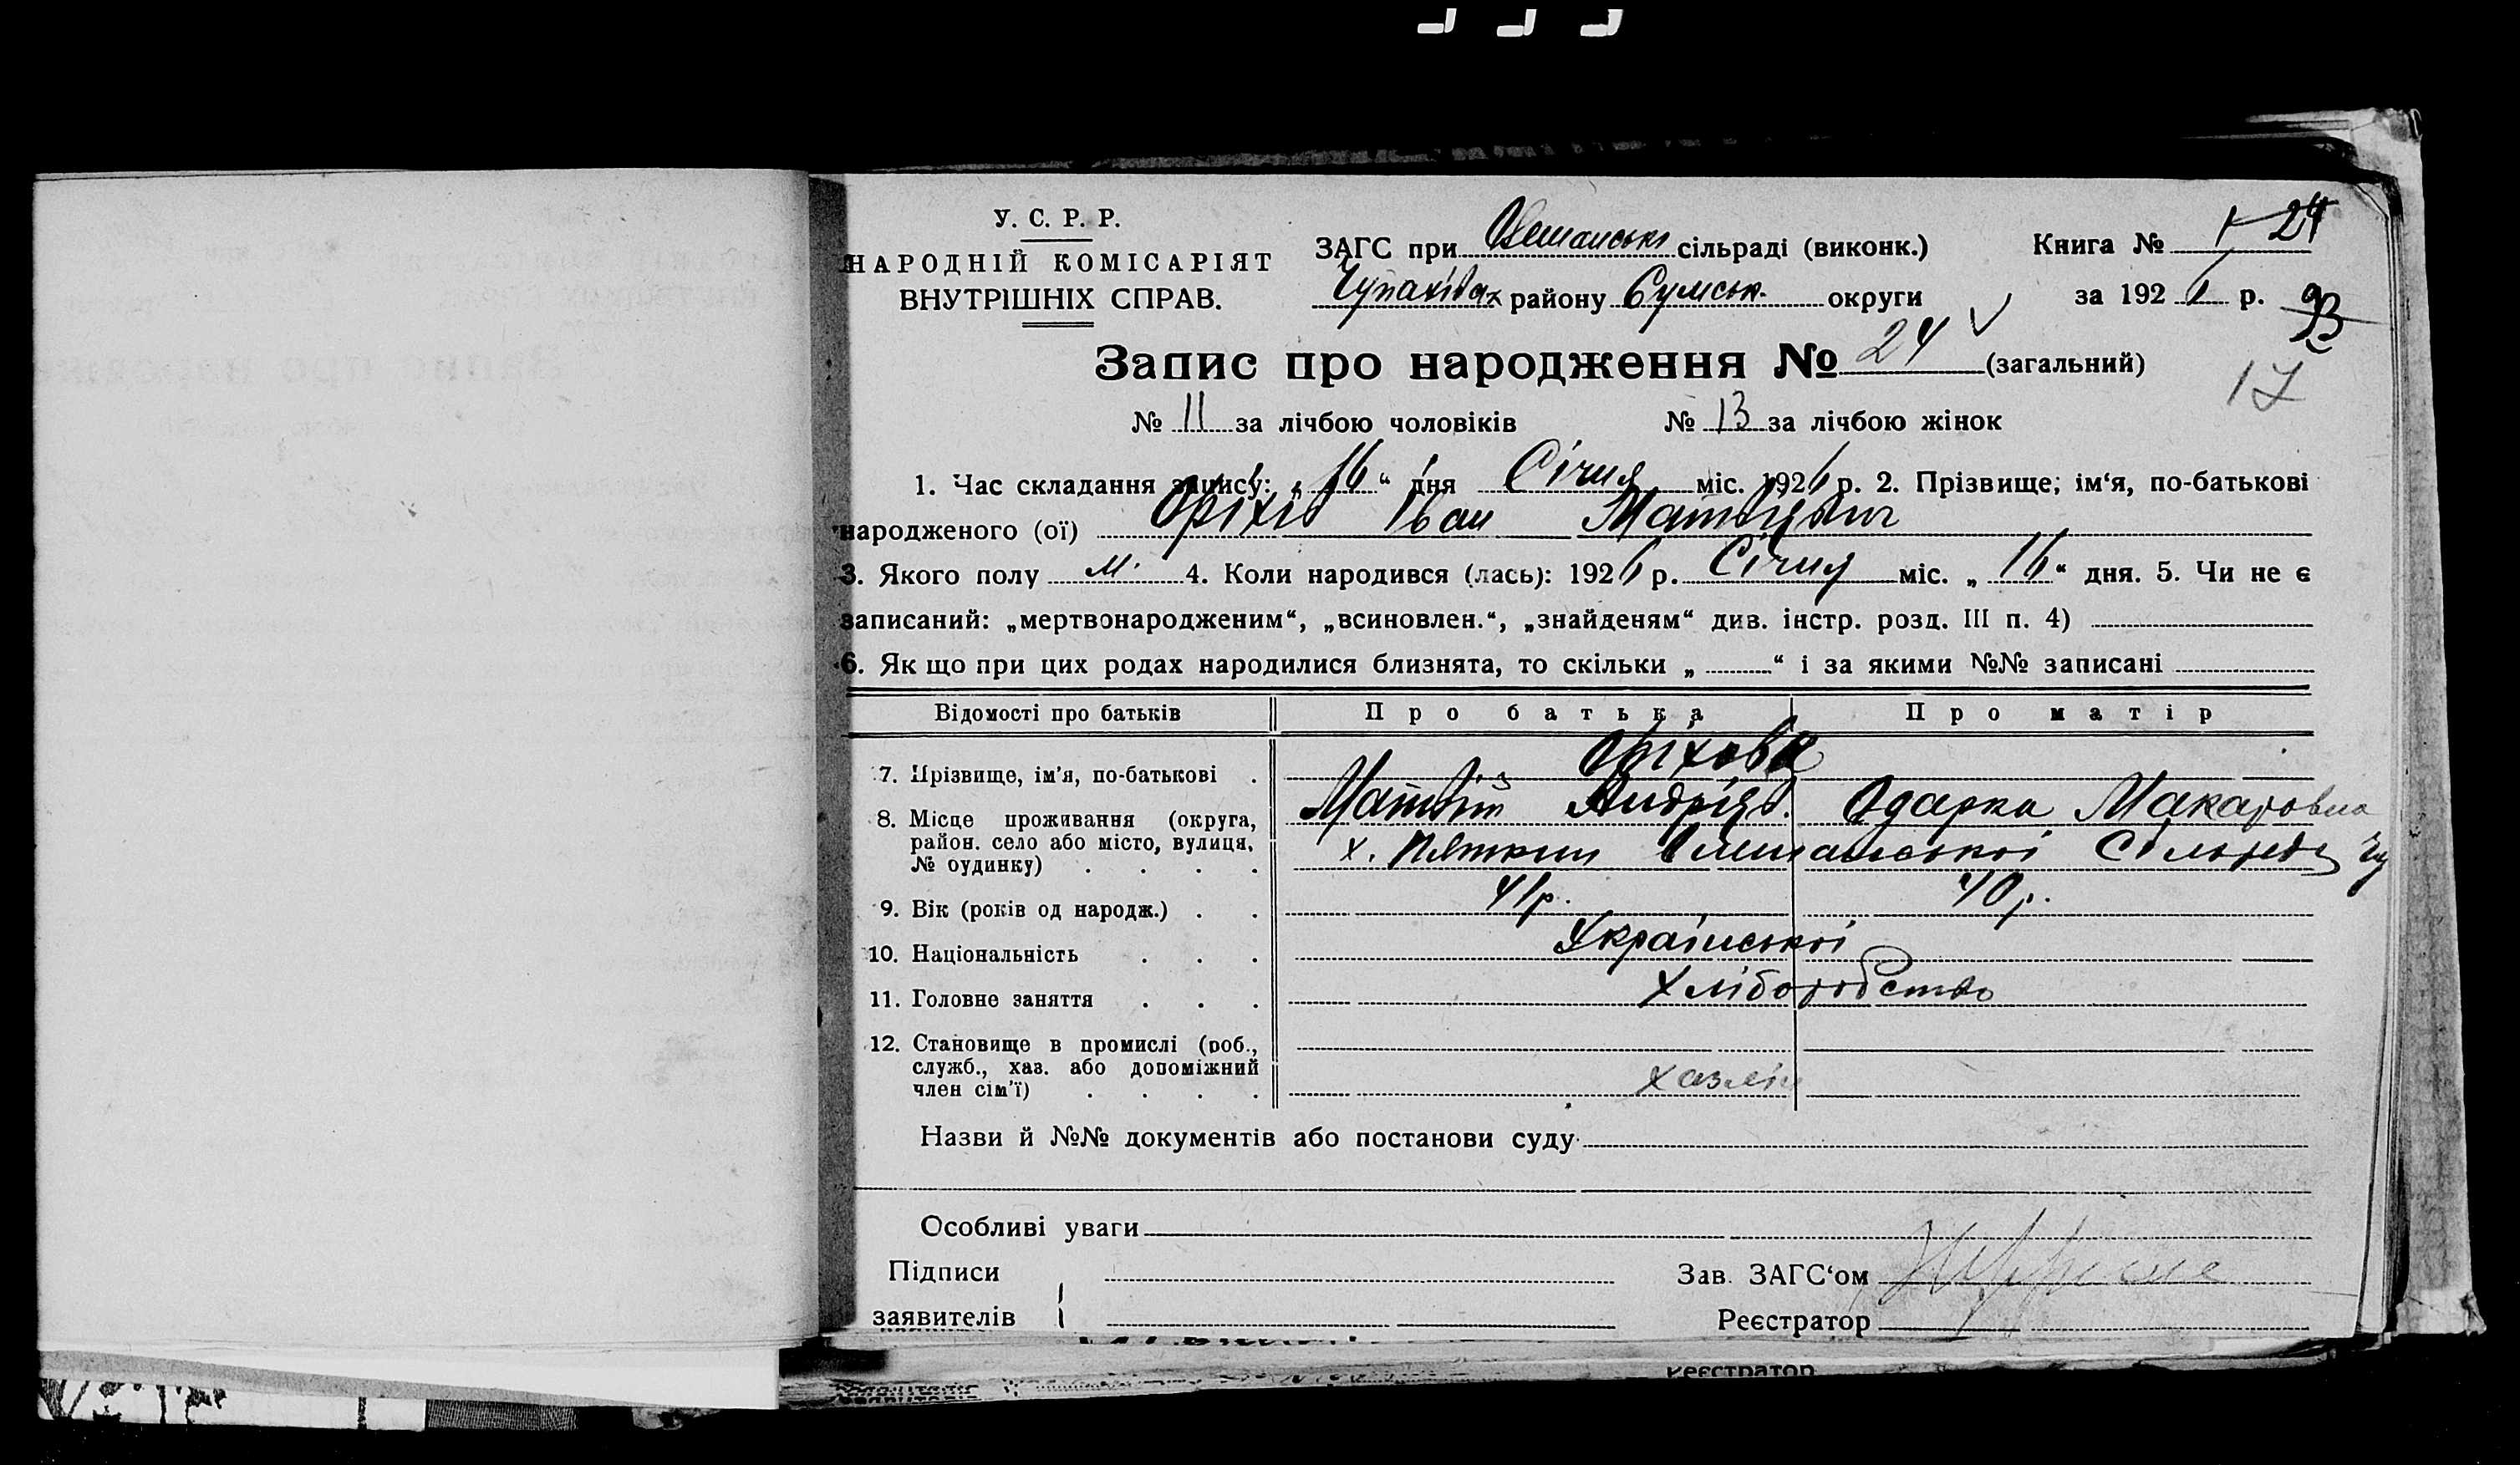 У. С. Р. Р.
НАРОДНІЙ КОМІСАРІЯТ
ВНУТРІШНІХ СПРАВ.
ЗАГС при сільраді (виконк.)
района Сумськ. округи
Книга № 1 24
за 1926 р.
Запис про народження № 24 (загальний)
17
№ 11 за лічбою чоловіків № 13 за лічбою жінок
1. Час складання запису: „16“ дня Січня міс. 1926 р. 2. Прізвище; ім‘я, по-батькові
народженого (ої) Оріхів Іван Матвієвич
3. Якого полу м. 4. Коли народився (лась): 1926 р. Січня міс. „16“ дня. 5. Чи не є
записаний: „мертвонародженим“, „всиновлен.“, „знайденям“ див. інстр. розд. III п. 4)
6. Як що при цих родах народилися близнята, то скільки „ “ і за якими №№ записані
Відомості про батьків Про батька Про матір
7. Прізвище, ім'я, по-батькові Оріхова
Матвій Андріяв. Одарка Макаровна
8. Місце проживання (округа,
район. село або місто, вулиця,
№ будинку)
х. Пяткин Сільради
9. Вік (років од народж.) 41р. 40р.
10. Національність Української
11. Головне заняття Хліборобство
12. Становище в промислі (роб.,
служб., хаз. або допоміжний
член сім'ї) хазяін
Назви й №№ документів або постанови суду
Особливі уваги
Підписи
заявителів
Зав. ЗАГС‘ом
Реєстратор
Реєстратор